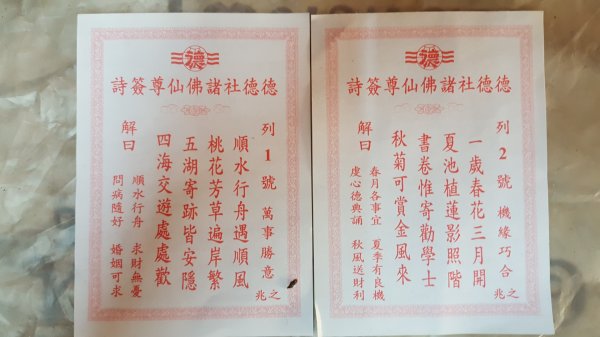 德
德德社諸佛仙尊簽詩
列1號 萬事勝意之兆
順水行舟遇順風
桃花芳草遍岸繁
五湖寄跡皆安隱
四海交遊處處歡
解曰
順水行舟 求財無憂
問病隨好 婚姻可求
德
德德社諸佛仙尊簽詩
列2號 機緣巧合之兆
一歲春花三月開
夏池植蓮影照階
書卷惟寄勸學士
秋菊可賞金風來
解曰
春月各事宜 夏季有良機
虔心德典誦 秋風送財利